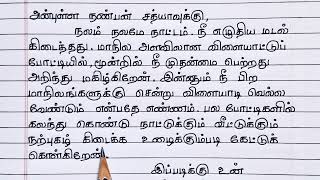 அன்புள்ள நண்பன் சத்யாவுக்கு,
நலம் நலமே நாட்டம். நீ எழுதிய மடல்
கிடைத்தது. மாநில அளவிலான விளையாட்டுப்
போட்டியில், மூன்றில் நீ முதன்மை பெற்றது
அறிந்து மகிழ்கிறேன். இன்னும் நீ பிற
மாநிலங்களுக்கு சென்று விளையாடி வெல்ல
வேண்டும் என்பதே எண்ணம். பல போட்டிகளில்
கலந்து கொண்டு நாட்டுக்கும் வீட்டுக்கும்
நற்புகழ் கிடைக்க உழைக்கும்படி கேட்டுக்
கொள்கிறேன்.
இப்படிக்கு உன்